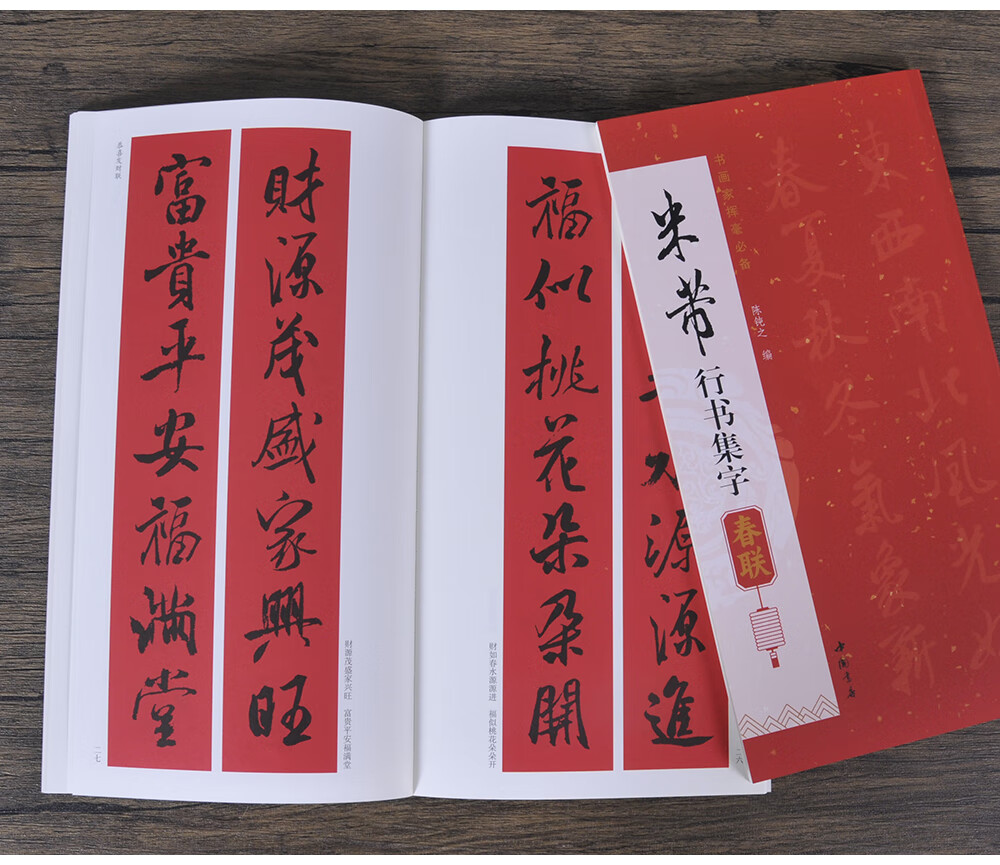 恭喜发财联
財源茂盛家興旺
富貴平安福滿堂
财源茂盛家兴旺　富贵平安福满堂
二七
源源進
福似桃花朵朵開
财如春水源源进　福似桃花朵朵开
二六
书画家挥毫必备
米芾
行书集字
春联
陈钝之　编
中国书店
東西南北風光
春夏秋冬氣象新